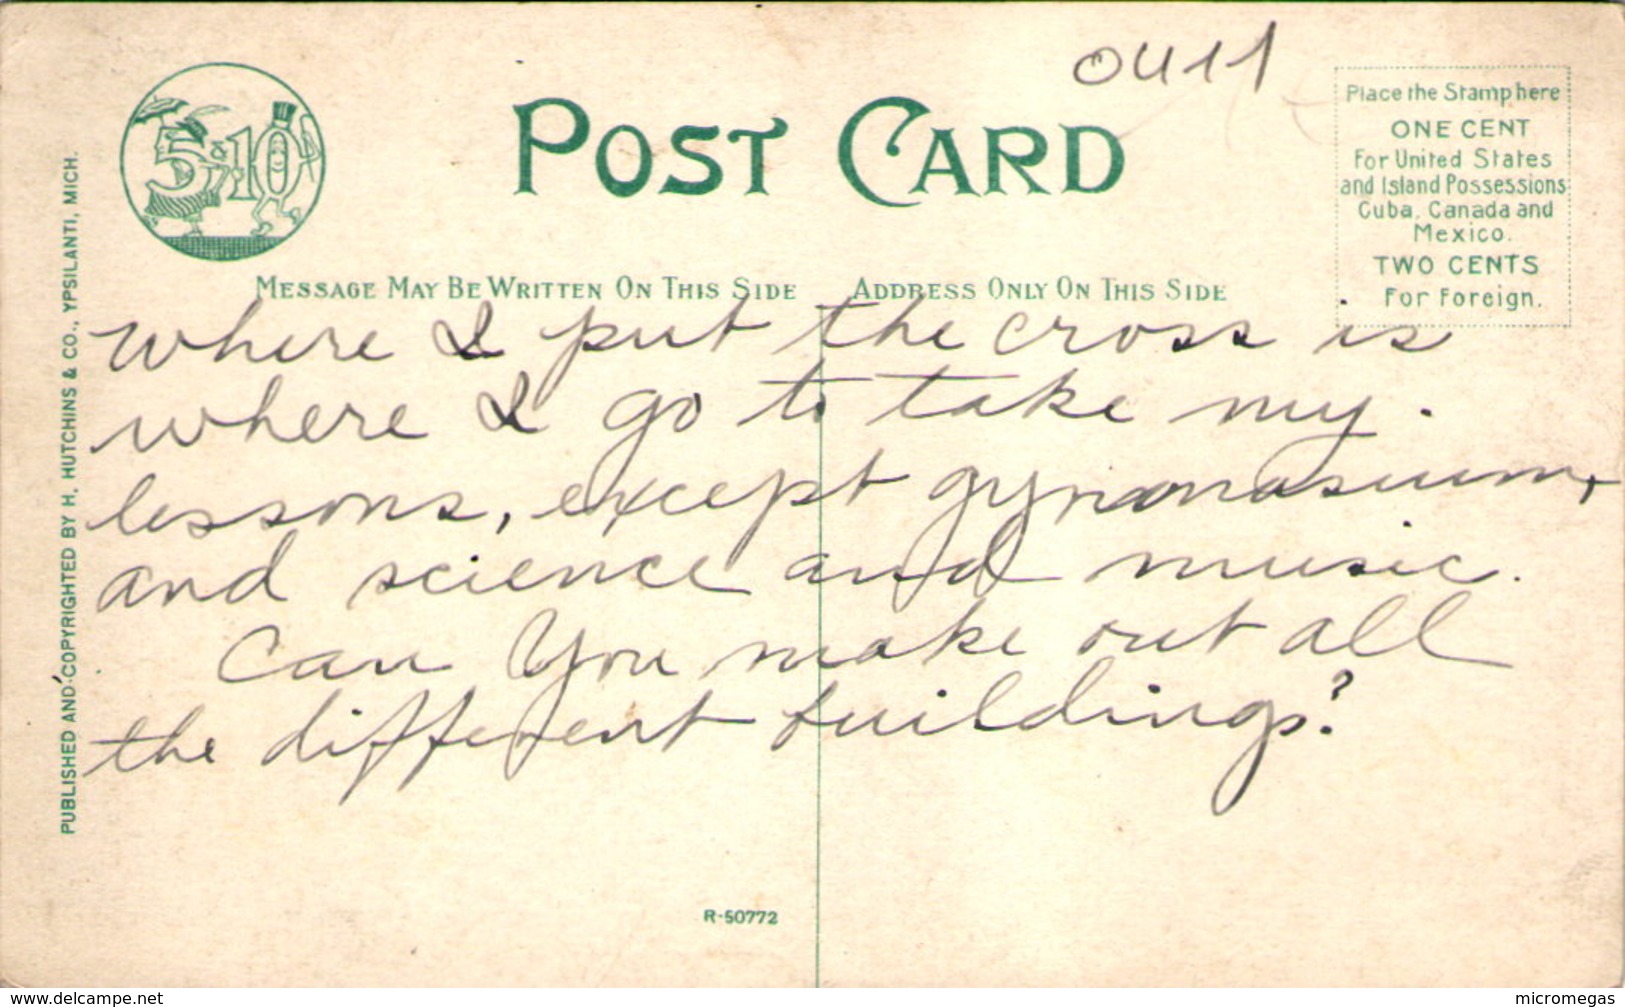 0411
5 & 10
POST CARD
Place the Stamp here
ONE CENT
For United States
and Island Possessions
Cuba, Canada and
Mexico.
TWO CENTS
For Foreign.
MESSAGE MAY BE WRITTEN ON THIS SIDE
ADDRESS ONLY ON THIS SIDE
where I put the cross is
where I go to take my.
lessons, except gymnasium,
and science and music.
Can You make out all
the different buildings?
PUBLISHED AND COPYRIGHTED BY H. HUTCHINS & CO., YPSILANTI, MICH.
R-50772
www.delcampe.net
micromegas